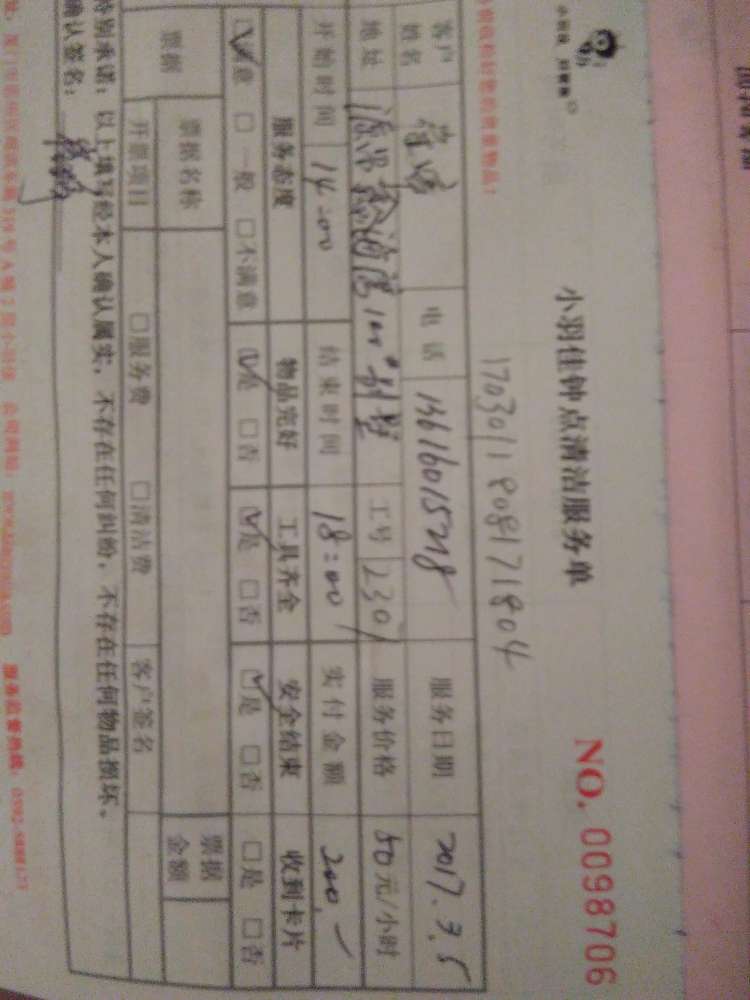 小羽佳钟点清洁服务单
NO. 0098706
1703011808171804
客户姓名 电话 13616015218 服务日期 2017.3.5
地址 工号 2301 服务价格 50元/小时
开始时间 14:00 结束时间 18:00 实付金额 200.-
服务态度 物品完好 工具齐全 安全结束 收到卡片
☑满意 □一般 □不满意 ☑是 □否 ☑是 □否 ☑是 □否 □是 □否
票据 票据名称 票据金额
开票项目 □服务费 □清洁费 客户签名
特别承诺：以上填写经本人确认属实，不存在任何纠纷，不存在任何物品损坏。
确认签名：
服务监督热线：